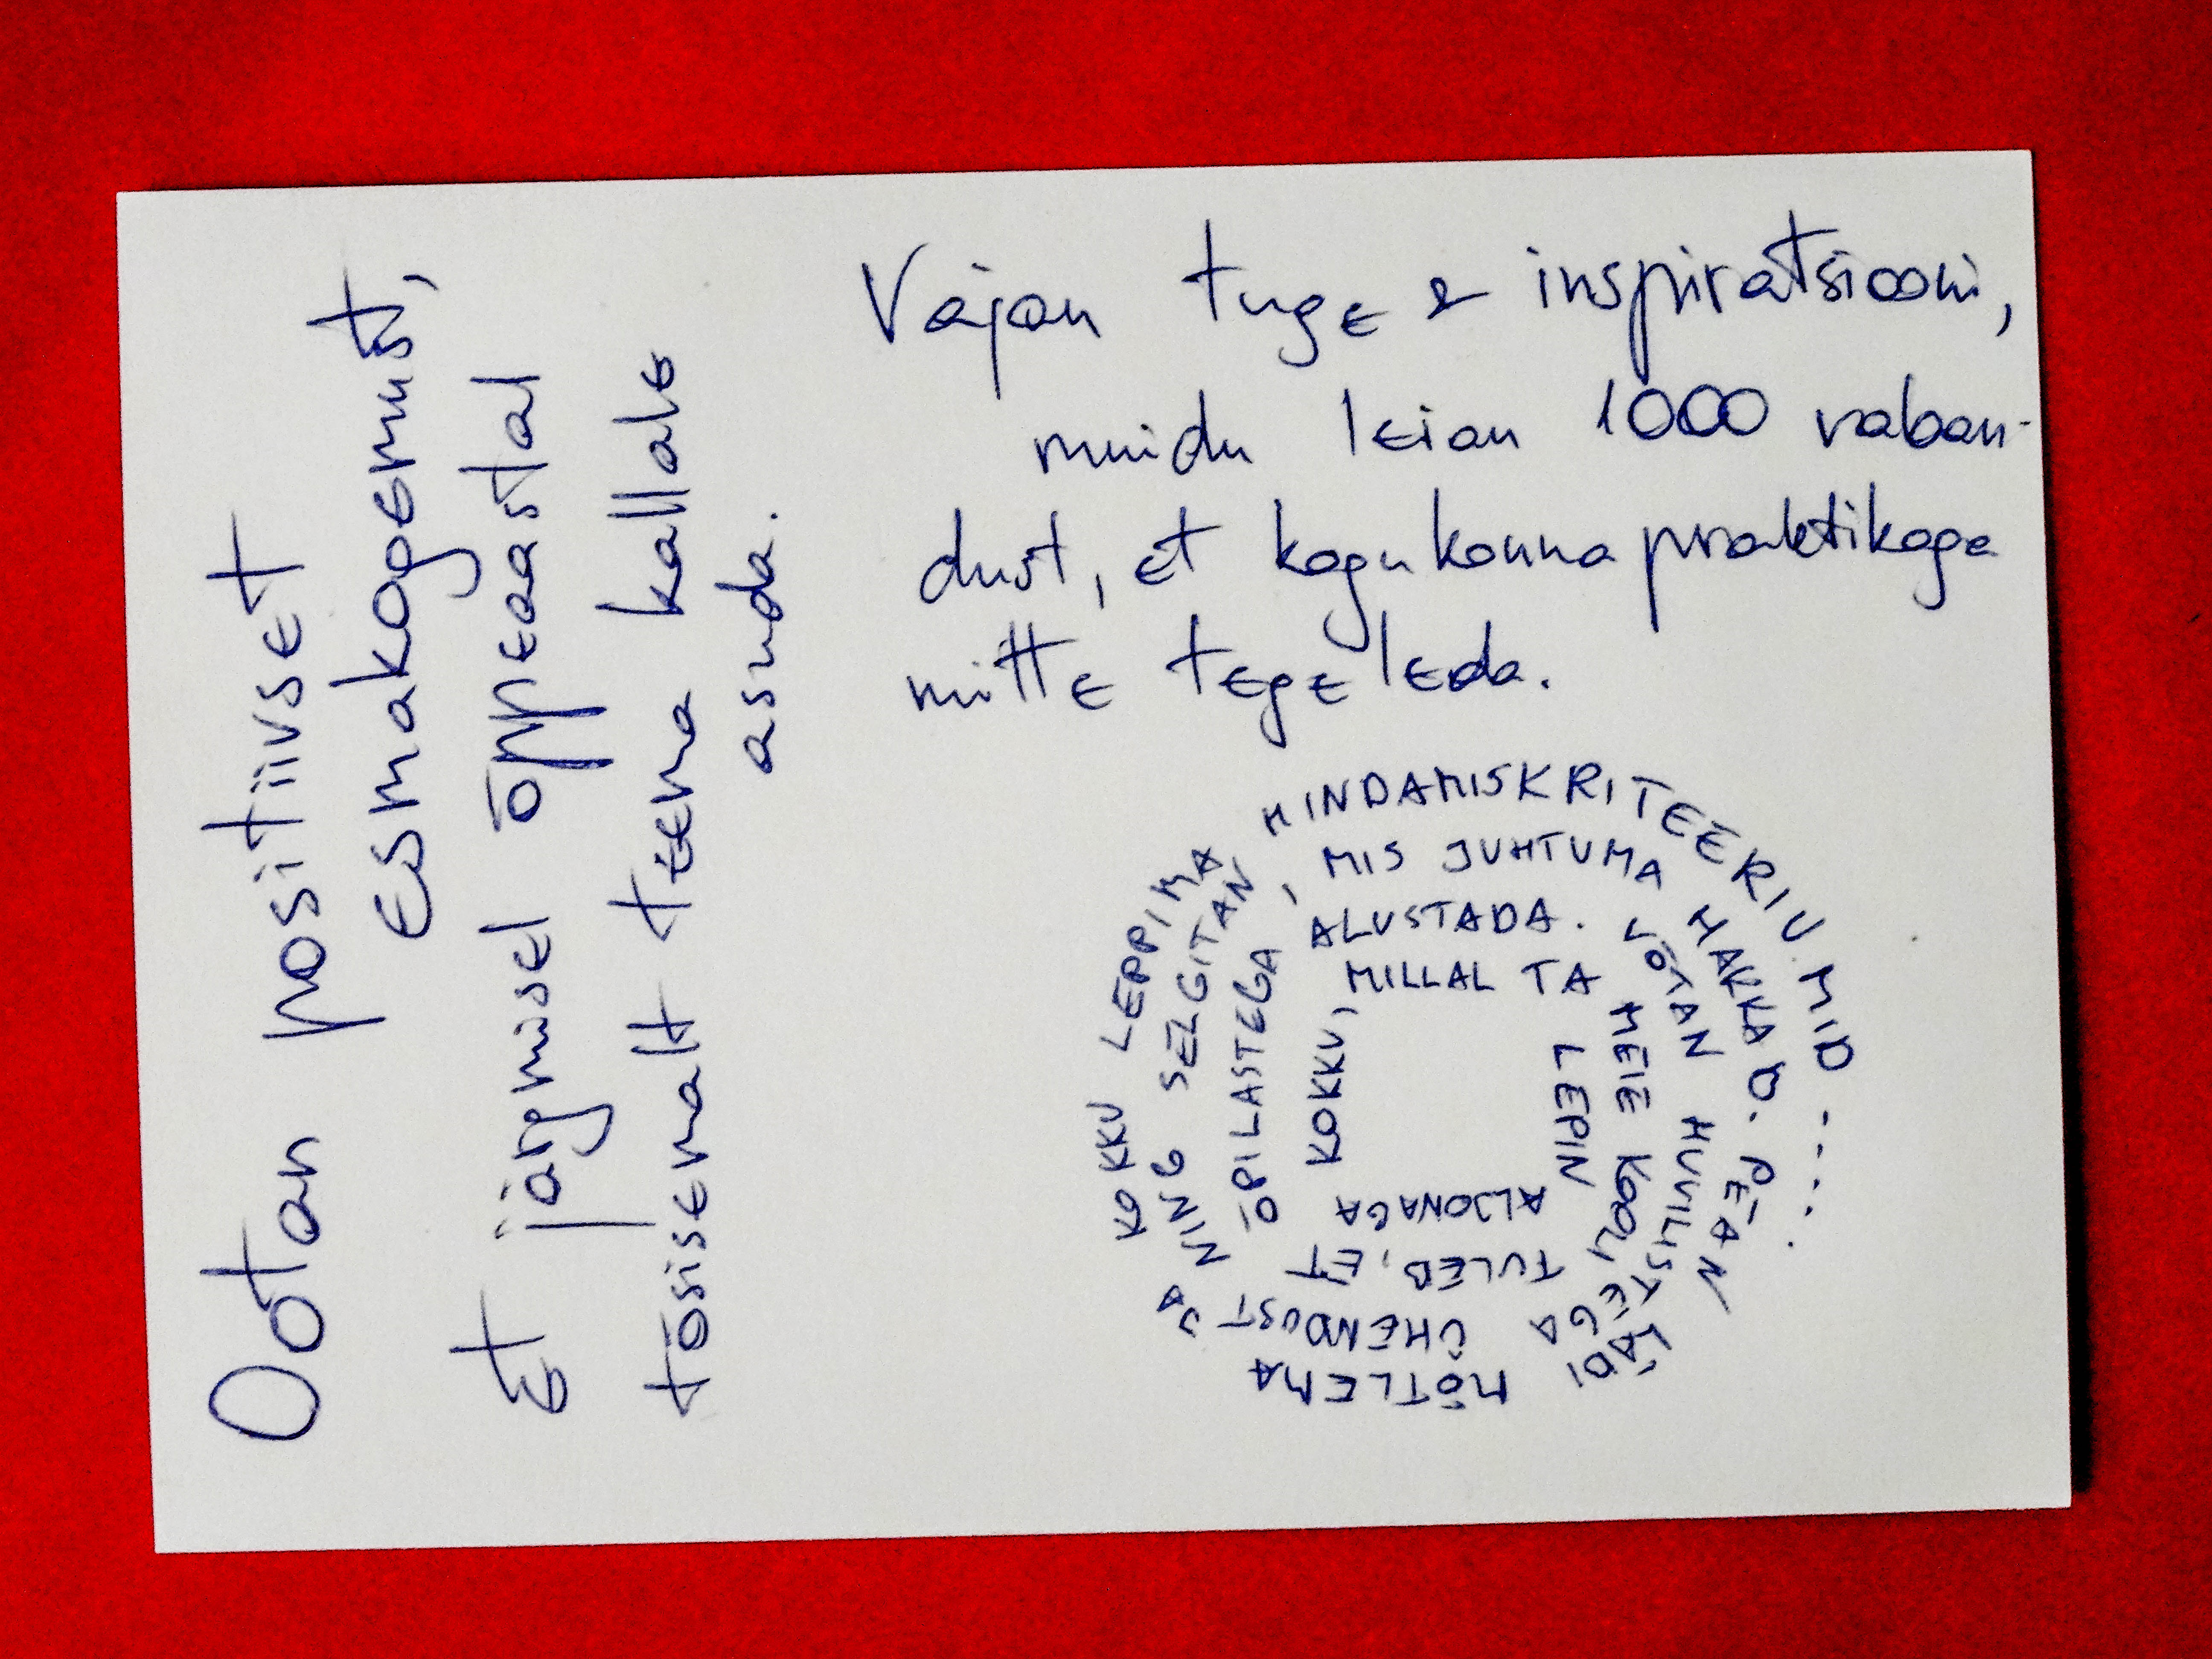 Ootan positiivset
esmakogemust,
et järgmisel õppeaastal
tõsisemalt teema kallale
asuda.
Vajan tuge & inspiratsiooni,
muidu leian 1000 vaban-
dust, et kogukonnapraktikaga
mitte tegeleda.
LEPIN ALJONAGA KOKKU, MILLAL TA MEIE KOOLI TULEB, ET ÕPILASTEGA ALUSTADA. VÕTAN HUVILISTEGA ÜHENDUST JA SELGITAN, MIS JUHTUMA HAKKAB. PEAN LÄBI MÕTLEMA NING KOKKU LEPPIMA HINDAMISKRITEERIUMID.....